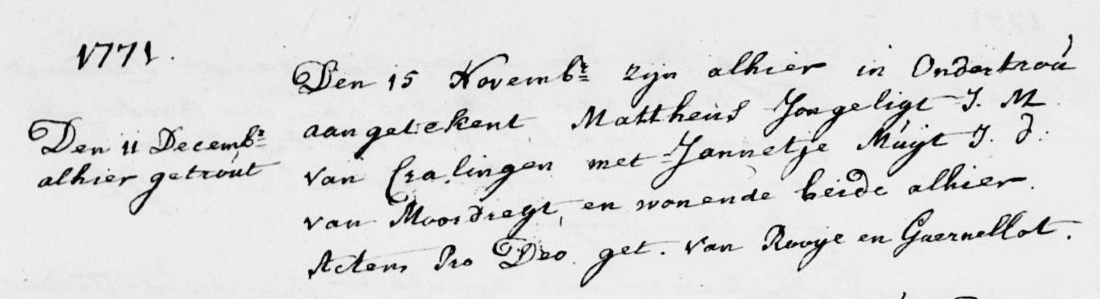 1771.
Den 11 Decembr
alhier getrout
Den 15 Novembr zijn alhier in Ondertrou
aangetekent Mattheus Jongeligt J. M
van Cralingen met Jannetje Muijt J. d:
van Moordregt, en wonende beide alhier.
Actens Pro Deo get. van Rooije en Guernellot.